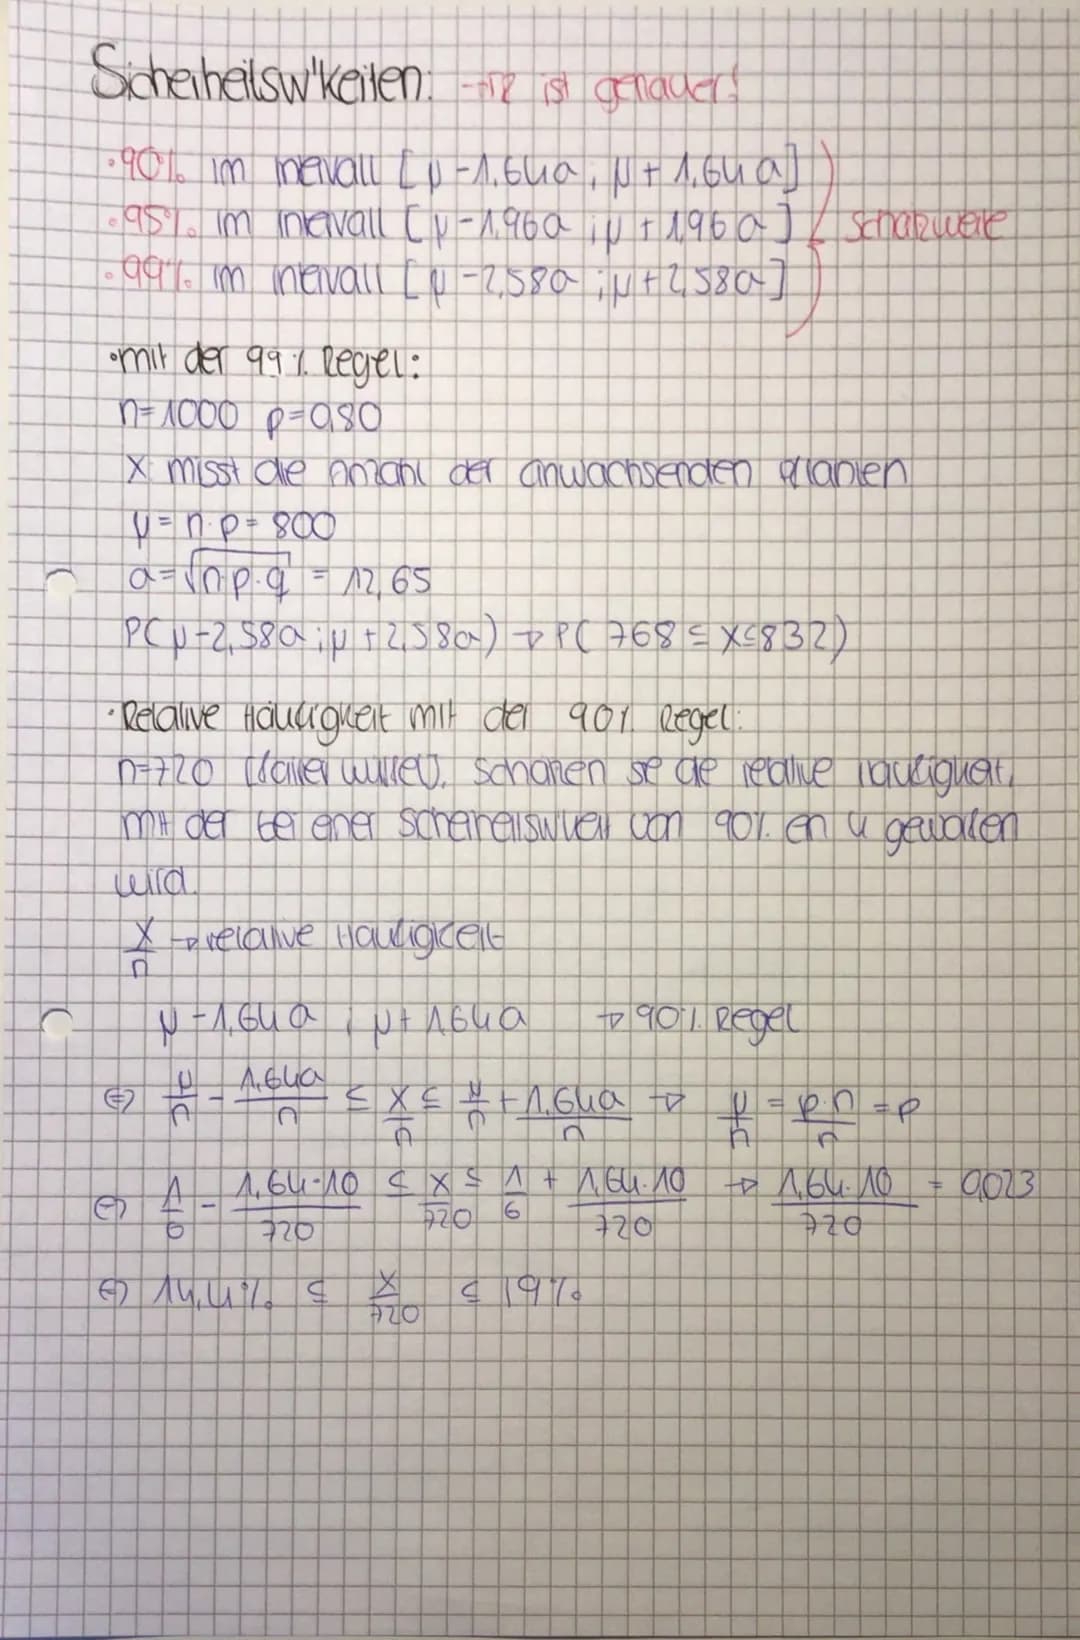 Sicherheitsw'keiten: →TR ist genauer!
• 90% im Intervall [μ-1,64σ; μ+1,64σ]
• 95% im Intervall [μ-1,96σ; μ+1,96σ] Schätzwerte
• 99% im Intervall [μ-2,58σ; μ+2,58σ]
• mit der 99% Regel:
n=1000 p=0,80
X: misst die Anzahl der anwachsenden Pflanzen
μ=n·p=800
σ=√n·p·q = 12,65
P(μ-2,58σ; μ+2,58σ) → P(768≤X≤832)
• Relative Häufigkeit mit der 90% Regel:
n=720 schätzen sie die relative Häufigkeit,
mit der bei einer Sicherheitsw'keit von 90% ein 4 geworfen
wird.
X/n → relative Häufigkeit
μ-1,64σ ; μ+1,64σ → 90% Regel
⇔ μ/n - 1,64σ/n ≤ X/n ≤ μ/n + 1,64σ/n → μ/n = p·n/n = p
⇔ 1/6 - 1,64·10/720 ≤ X/720 ≤ 1/6 + 1,64·10/720 → 1,64·10/720 = 0,023
⇔ 14,4% ≤ X/720 ≤ 19%